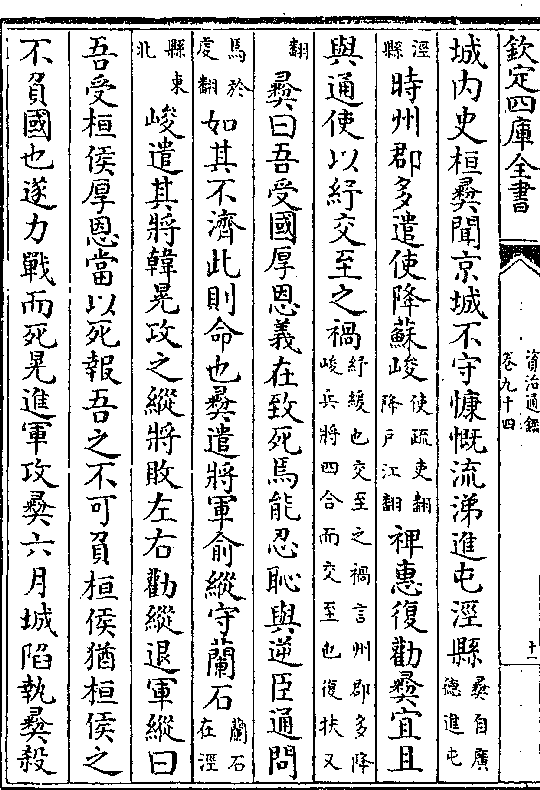 欽定四庫全書
資治通鑑
卷九十四
十一
城内史桓彞聞京城不守慷慨流涕進屯涇縣彞自廣德進屯
涇縣時州郡多遣使降蘇峻使疏吏翻降戶江翻裨惠復勸彞宜且
與通使以紓交至之禍紓緩也交至之禍言州郡多降峻兵將四合而交至也復扶又
翻彞曰吾受國厚恩義在致死焉能忍恥與逆臣通問
焉於䖏翻如其不濟此則命也彞遣將軍俞縱守蘭石蘭石在涇
縣東北峻遣其將韓晃攻之縱將敗左右勸縱退軍縱曰
吾受桓侯厚恩當以死報吾之不可負桓侯猶桓侯之
不負國也遂力戰而死晃進軍攻彞六月城陷執彞殺